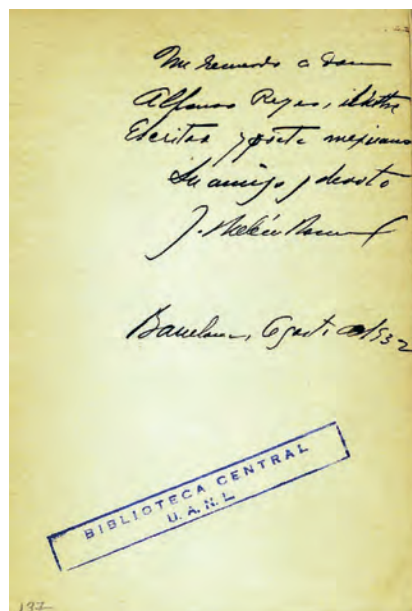 Un recuerdo a Don
Alfonso Reyes, ilustre
Escritor y poeta mejicano
Su amigo y devoto
J.
Barcelona, Agosto 1932
BIBLIOTECA CENTRAL
U. A. N. L.
137